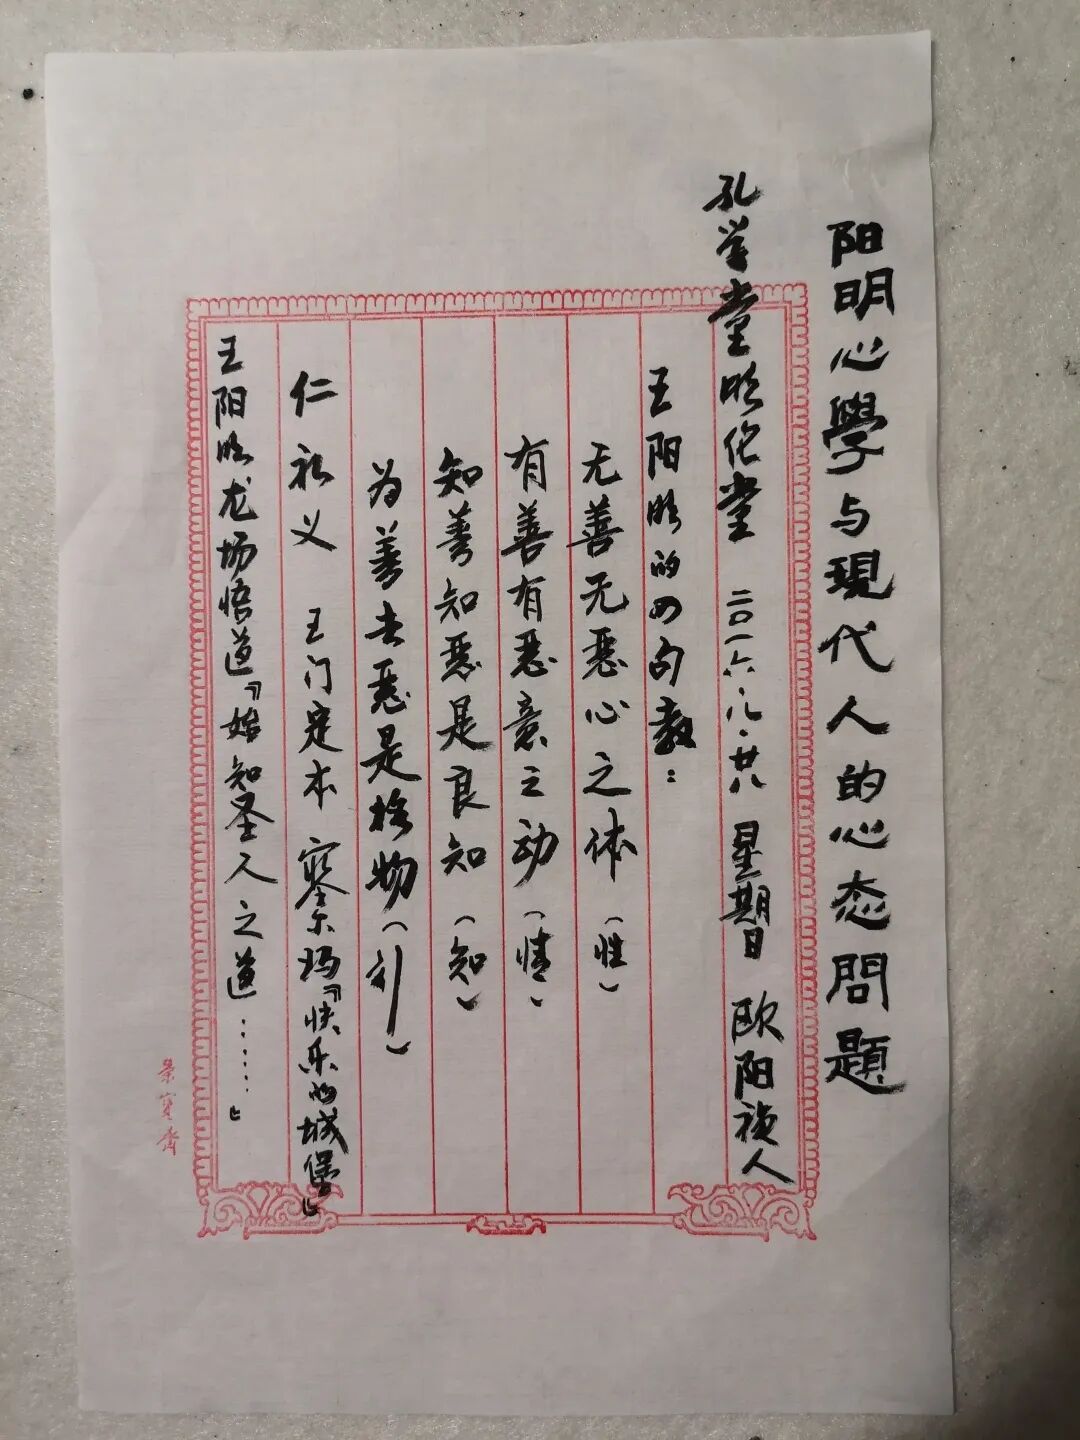 阳明心學与現代人的心态問題
孔学堂明伦堂 二〇一六·八·廿八 星期日 欧阳祯人
王阳明的四句教：
无善无恶心之体（性）
有善有恶意之动（情）
知善知恶是良知（知）
为善去恶是格物（行）
仁礼义 王门定本 塞尔玛『快乐的城堡』
王阳明龙场悟道『始知圣人之道……』
荣宝斋